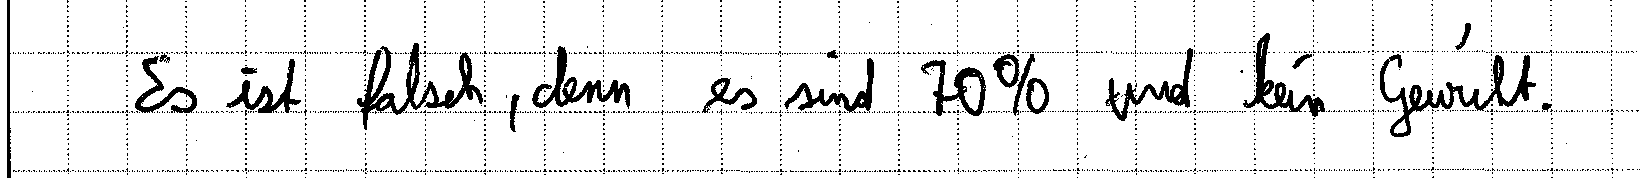 Es ist falsch, denn es sind 70% und kein Gewicht.